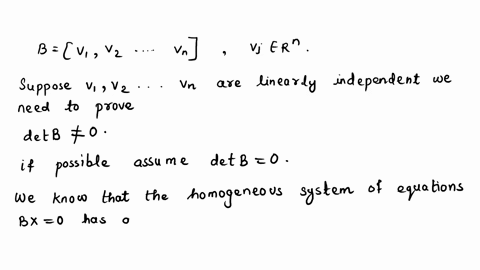 B = [v₁, v₂ .... vₙ] , vⱼ ∈ Rⁿ.
Suppose v₁, v₂ ... vₙ are linearly independent we
need to prove
det B ≠ 0.
if possible assume det B = 0.
We know that the homogeneous system of equations
BX = 0 has